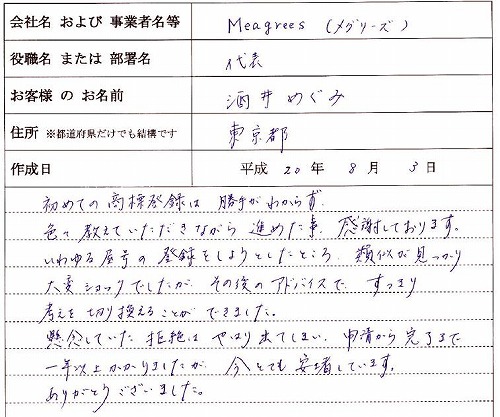 会社名 および 事業者名等 Meagrees (メグリーズ)
役職名 または 部署名 代表
お客様 の お名前 酒井めぐみ
住所 ※都道府県だけでも結構です 東京都
作成日 平成 20 年 8 月 5 日
初めての商標登録は 勝手がわからず、
色々教えていただきながら 進めた事、感謝しております。
いわゆる屋号の登録をしようとしたところ、類似が見つかり
大変ショックでしたが、その後のアドバイスで、すっきり
考えを切り換えることができました。
懸念していた拒絶は やはり出てしまい、申請から完了まで
一年以上かかりましたが、今とても安堵しています。
ありがとうございました。